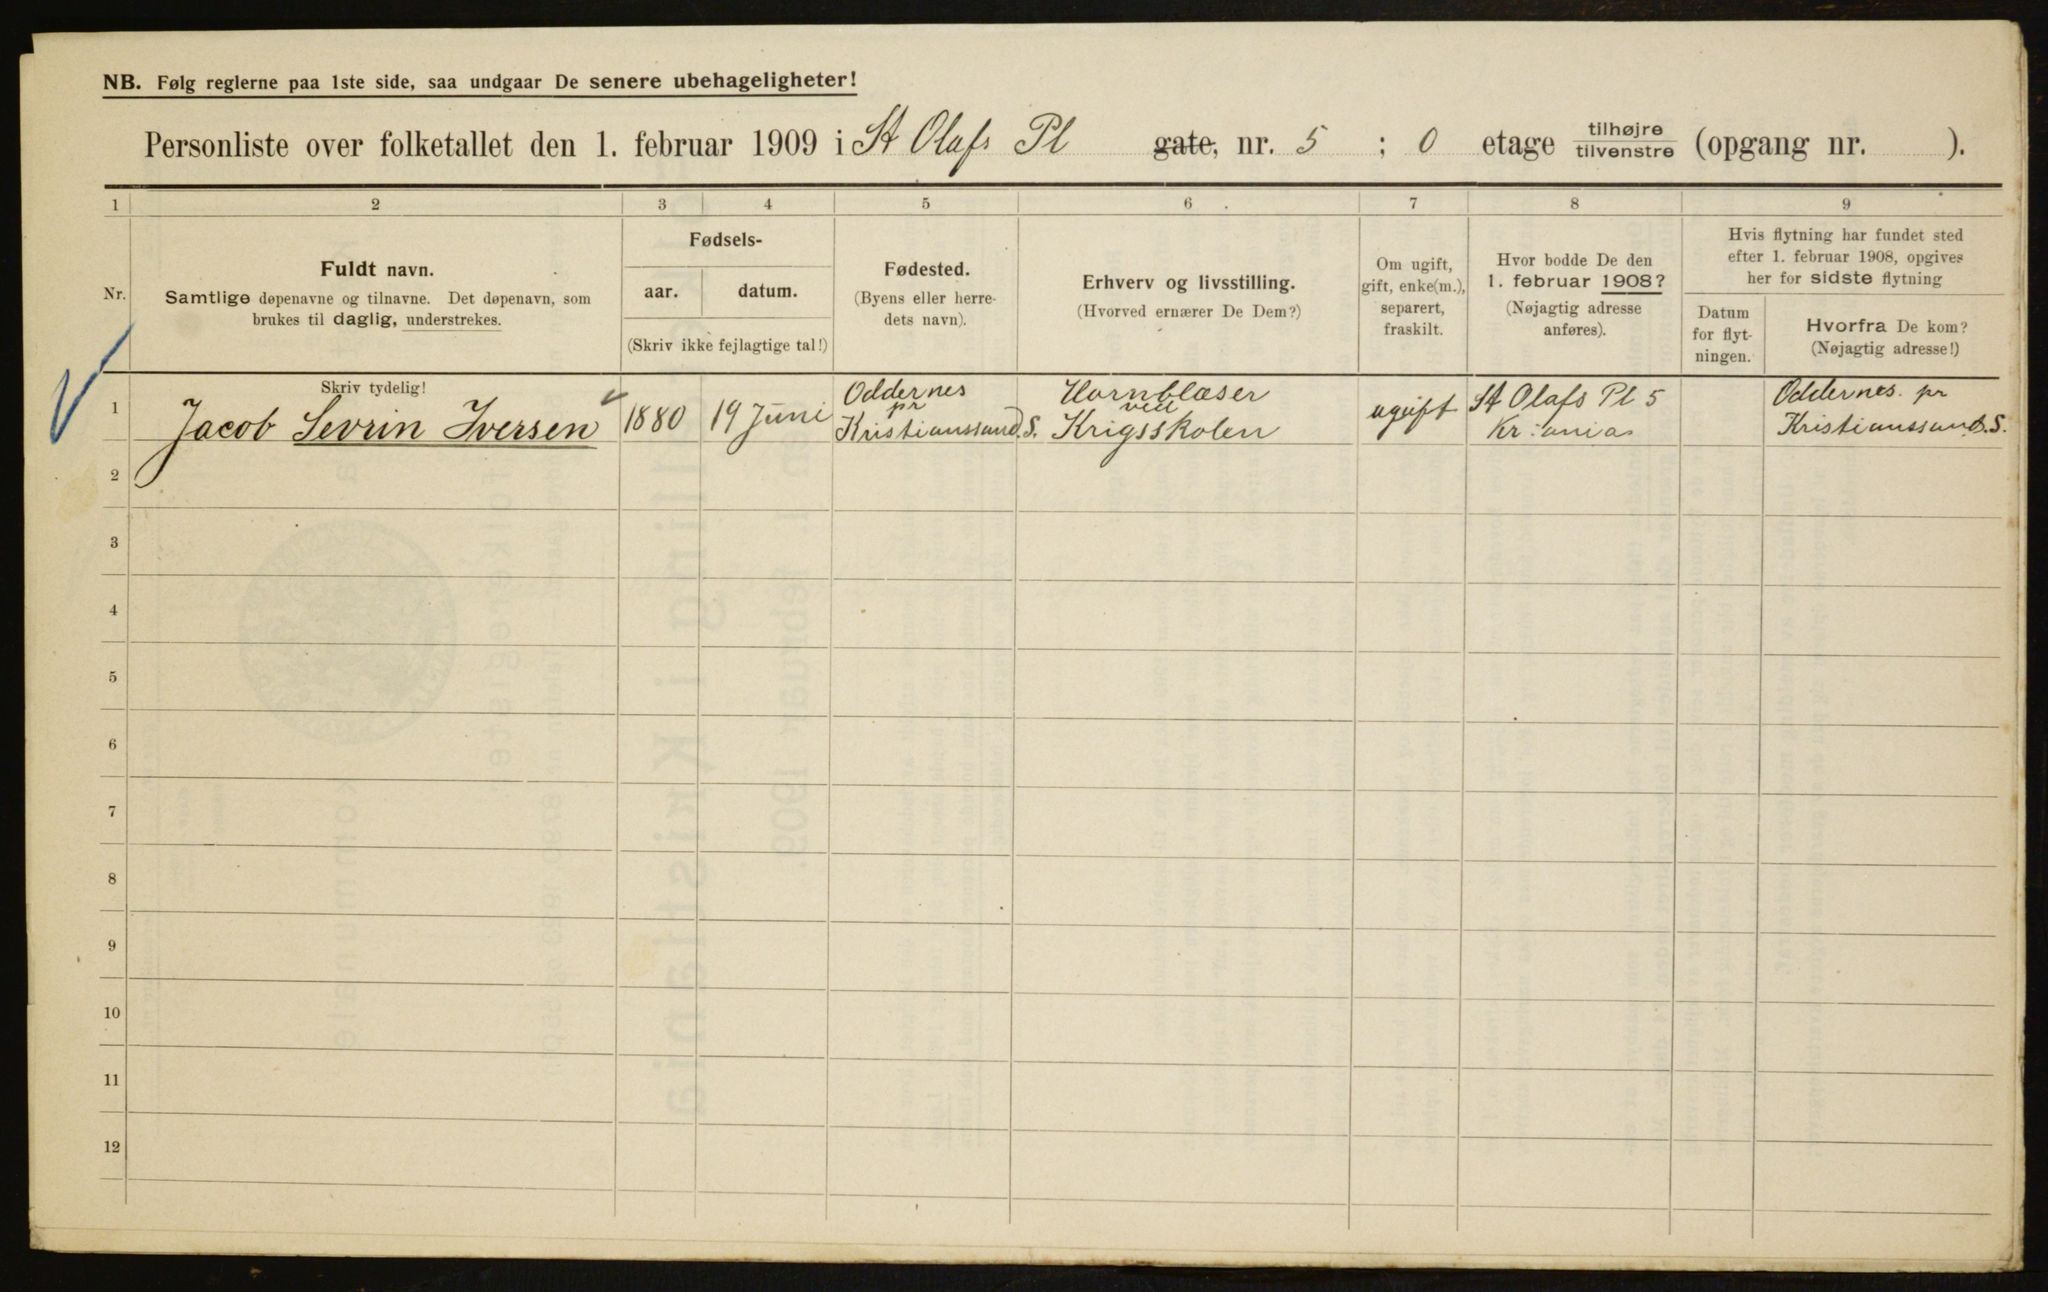 NB. Følg reglerne paa 1ste side, saa undgaar De senere ubehageligheter!
Personliste over folketallet den 1. februar 1909 i St Olafs Pl gate, nr. 5 ; 0 etage tilhøjre tilvenstre (opgang nr. ).
1 2 3 4 5 6 7 8 9
Nr.
Fuldt navn.
Samtlige døpenavne og tilnavne. Det døpenavn, som
brukes til daglig, understrekes.
Skriv tydelig!
Fødsels-
aar. datum.
(Skriv ikke fejlagtige tal!)
Fødested.
(Byens eller herre-
dets navn).
Erhverv og livsstilling.
(Hvorved ernærer De Dem?)
Om ugift,
gift, enke(m.),
separert,
fraskilt.
Hvor bodde De den
1. februar 1908?
(Nøjagtig adresse
anføres).
Hvis flytning har fundet sted
efter 1. februar 1908, opgives
her for sidste flytning
Datum
for flyt-
ningen.
Hvorfra De kom?
(Nøjagtig adresse!)
1
Jacob Sevrin Iversen
1880
19 Juni
Oddernes
pr
Kristianssand.S.
Hornblæser
ved
Krigsskolen
ugift
St Olafs Pl 5
Kr:ania
Oddernes. pr
Kristianssand.S.
2
3
4
5
6
7
8
9
10
11
12